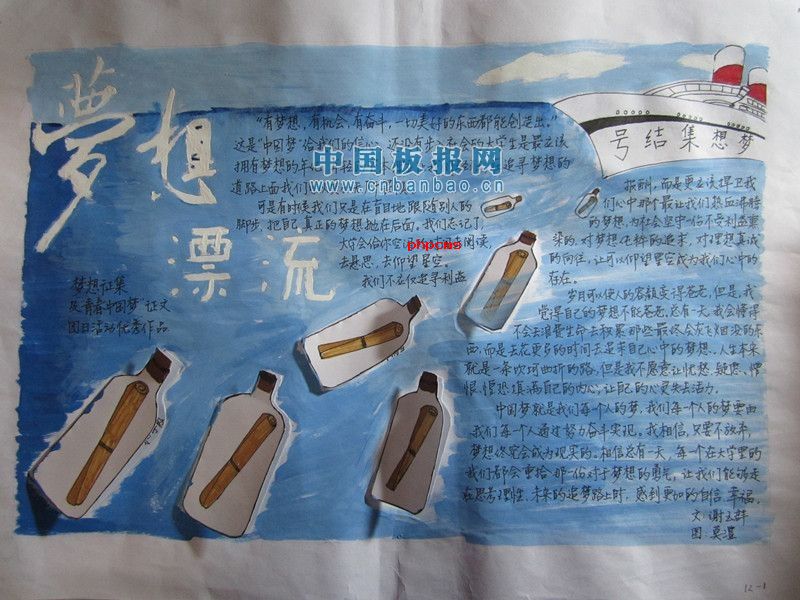 夢想
漂流
梦想集结号
中国板报网
www.cnbanbao.cn
phpcms
梦想征集
及“青春中国梦”征文
团日活动优秀作品
“有梦想，有机会，有奋斗，一切美好的东西都能创造出。”
这是“中国梦”给我们的信心。
拥有梦想的年纪
追寻梦想的
道路上面我们
可是有时候我们只是在盲目地跟随别人的
脚步，把自己真正的梦想抛在后面，我们忘记了，
大学会给你空间去阅读，
去悬思，去仰望星空。
我们不应仅追寻利益
报酬，而是更应该捍卫我
们心中那个最让我们热血沸腾
的梦想，为社会坚守一份不受利益熏
染的，对梦想纯粹的追求，对理想真诚
的向往，让可以仰望星空成为我们心中的
存在。
岁月可以使人的容颜变得苍老，但是，我
觉得自己的梦想不能苍老，总有一天，我会懂得
不会去浪费生命去积累那些最终会灰飞烟没的东
西，而是去花更多的时间去追求自己心中的梦想。人生本来
就是一条坎坷曲折的路，但是我不愿意让忧愁、疑虑、憎
恨、惶恐填满自己的内心，让自己的心更失去活力。
中国梦就是我们每个人的梦，我们每个人的梦要由
我们每个人通过努力奋斗实现。我相信，只要不放弃，
梦想终究会成为现实的。相信总有一天，每个在大学里的
我们都会重拾那一份对于梦想的勇气，让我们能够走
在思考理性、未来的追梦路上时，感到更加的自信、幸福。
文：谢玉群
图：莫湿
12-1